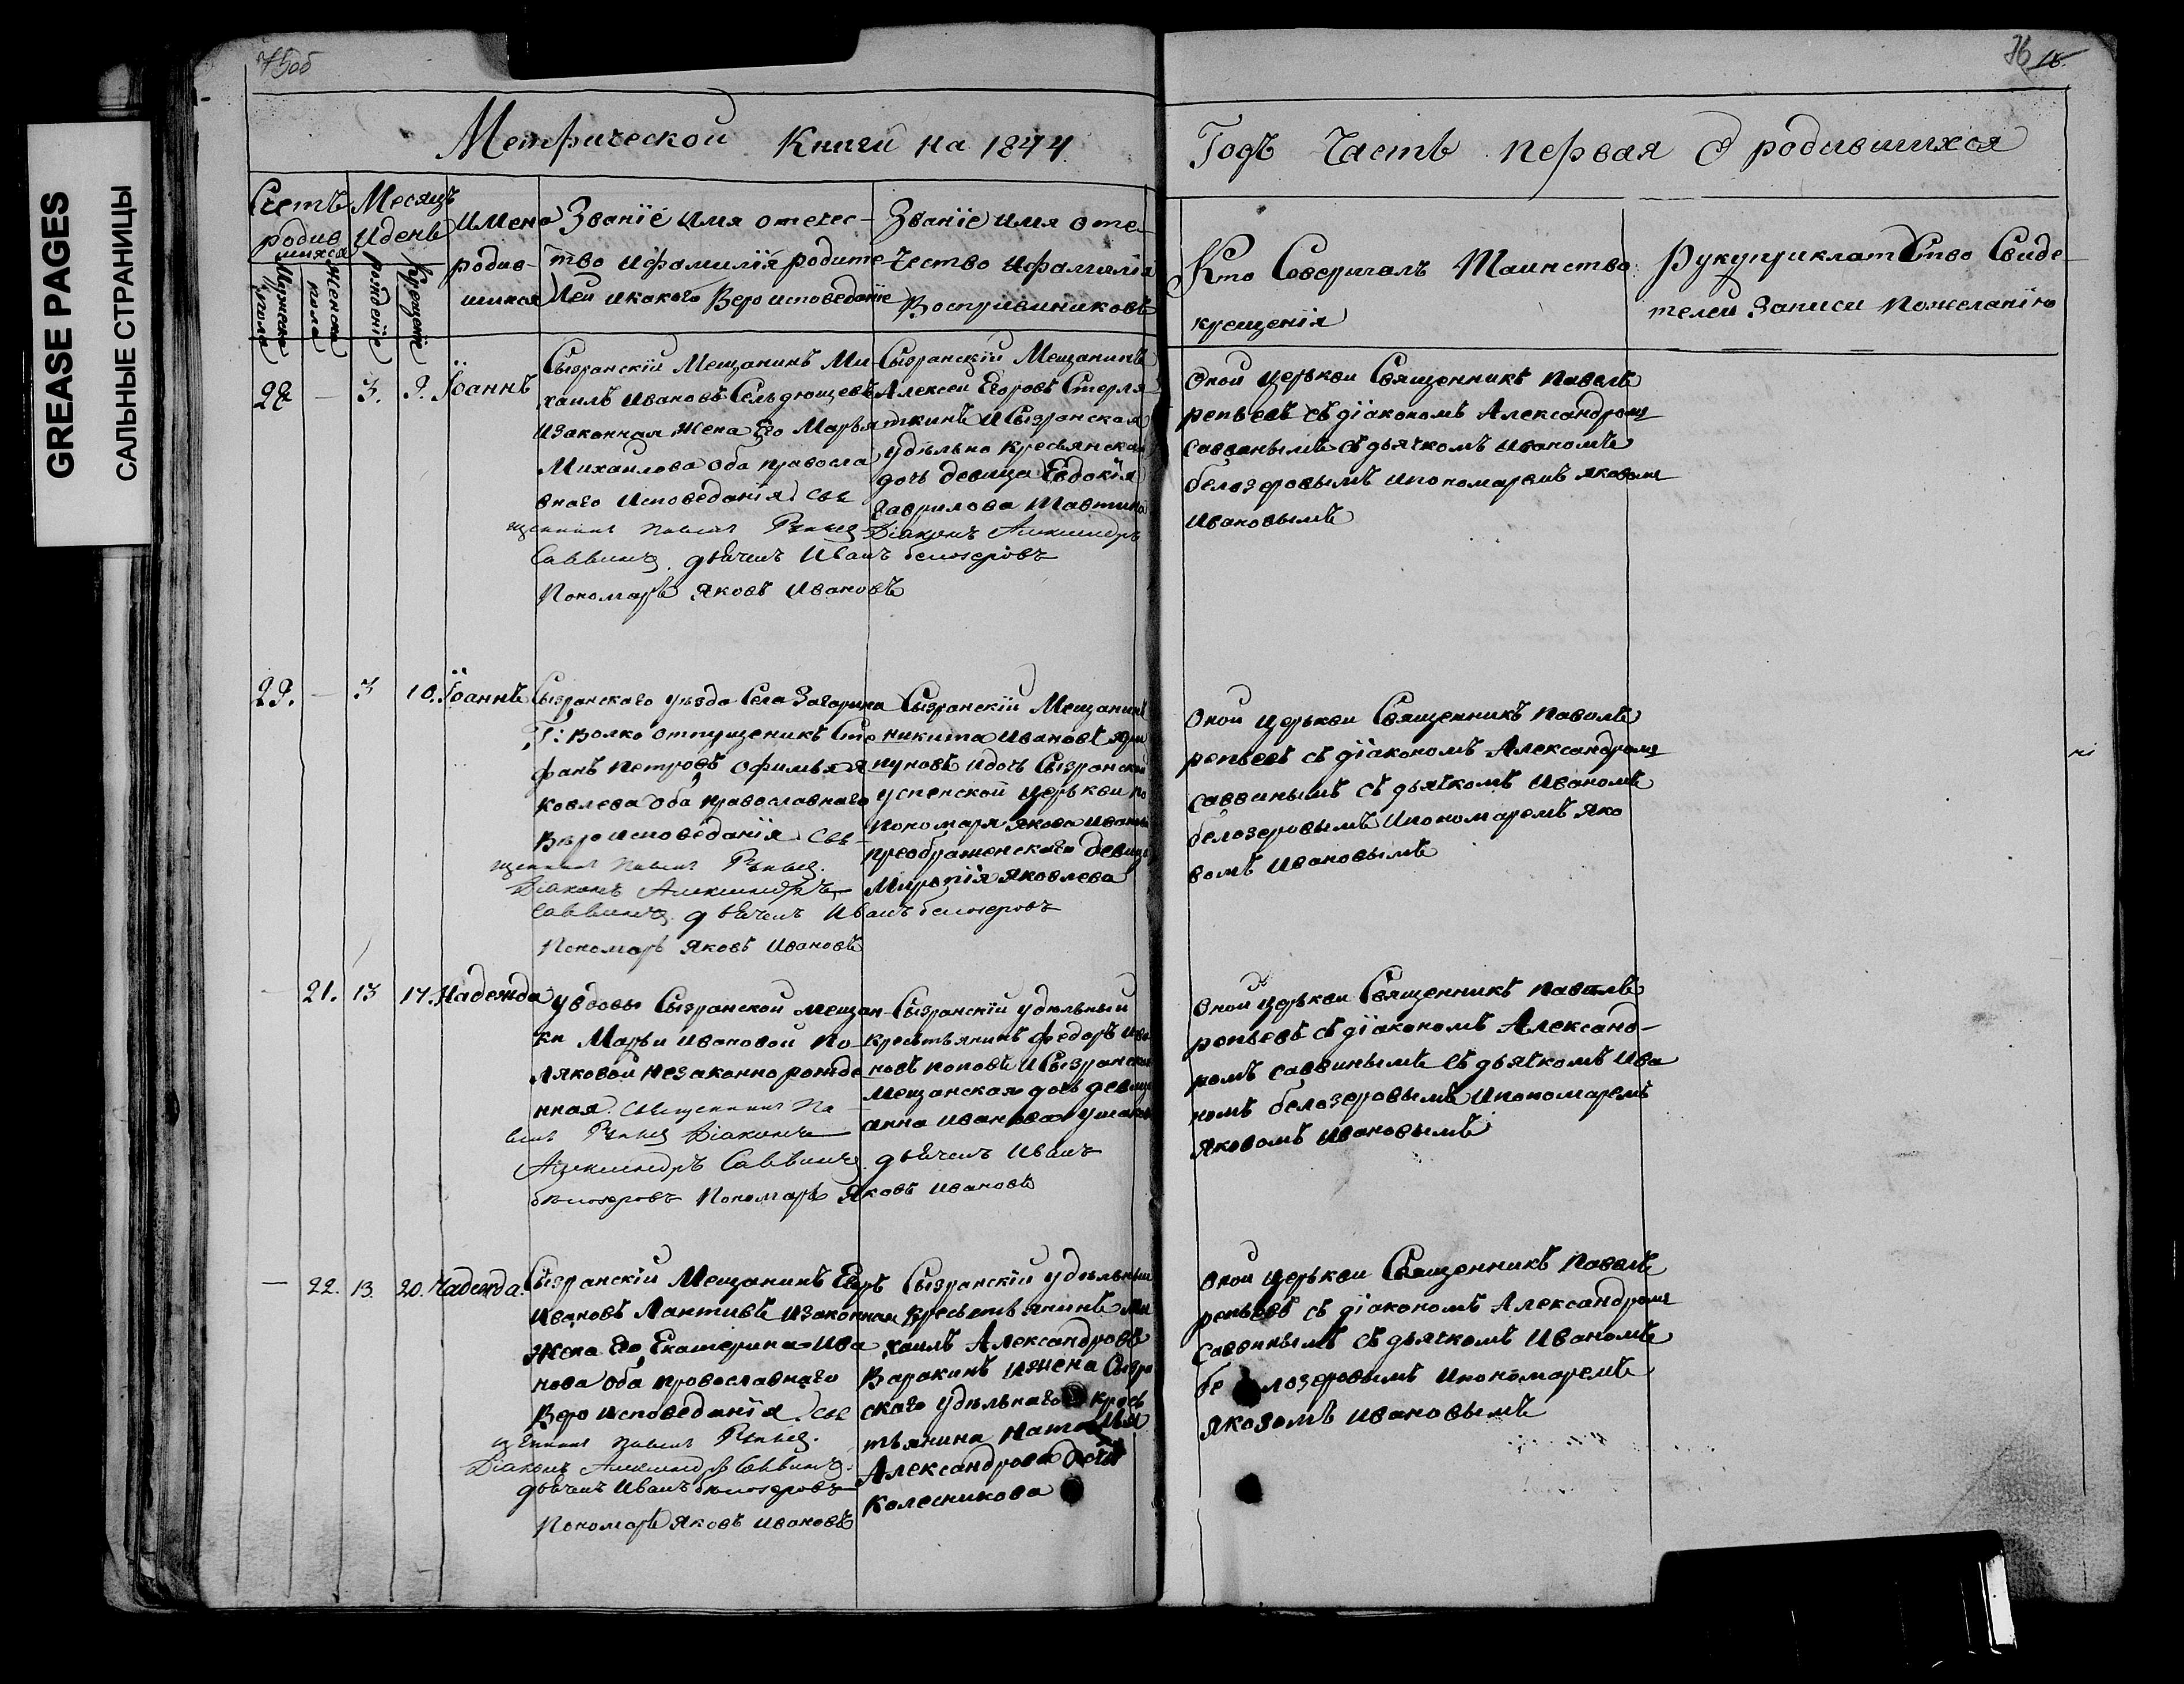 GREASE PAGES
САЛЬНЫЕ СТРАНИЦЫ
75об
76
Метрической Книги на 1844
Годъ Часть первая О родившихся
Счетъ родив шихся
Мужеска пола
Женска пола
Месяцъ и день
рождение
Крещение
Имена родив-шихся
Званiе имя отечес-
тво и фамилiя родите
лей и какого Веро исповеданiе
Званiе имя оте-
чество и фамилiя
Воспрiемниковъ
Кто Совершалъ Таинство
крещенiя
Рукуприклатство Свиде-
телей Записи По желанiю
28 — 3. 9. Iоаннъ
Сызранскiй Мещанинъ Ми-
хаилъ Ивановъ Сельдющевъ
и законная Жена Его Марья
Михаилова оба правосла
внаго Исповеданiя Свя
щенникъ Павелъ Репьев Дiаконъ Александръ
Саввинъ. дьячекъ Иванъ белозеровъ
Пономарь Яковъ Ивановъ
Сызранскiй Мещанинъ
Алексей Егоровъ Стерля
ткинъ и Сызранская
удѣльно кресьянская
дочь девица Евдокiя
Гаврилова
Оной церькви Священникъ Павелъ
репьевъ съ дiакономъ Александромъ
Саввинымъ съ дьячкомъ Иваномъ
белозеровымъ и пономаремъ Яковомъ
Ивановымъ
29. — 3 10. Iоаннъ
Сызранскаго уѣзда Села Загарина
Г: Волко отпущеникъ Сте
фанъ Петровъ Офимья Я
ковлева оба православнаго
Вѣро исповеданiя Свя-
щенникъ Павелъ Репьев.
Дiаконъ Александръ
Саввинъ. дьячекъ Иванъ белозеровъ
Пономарь Яковъ Ивановъ
Сызранскiй Мещанинъ
никита Ивановъ
нуновъ и дочь Сызранской
успенской церькви по
пономаря Якова Иванова
преображенскаго девица
Миропiя Яковлева
Оной церькви Священникъ Павелъ
репьевъ съ дiакономъ Александромъ
саввинымъ съ дьячкомъ Иваномъ
белозеровымъ и пономаремъ Яко
вомъ Ивановымъ
— 21. 13 17. Надежда
у вдовы Сызранской мещан-
ки Марьи Ивановой По
ляковой незаконно рожде
нная. Священникъ Па-
велъ Репьев Дiаконъ
Александръ Саввинъ. дьячекъ Иванъ
бѣлозеровъ Пономарь Яковъ Ивановъ
Сызранскiй удѣльный
крестьянинъ Федоръ Ива
новъ поповъ и Сызранская
мещанская дочь девица
анна Иванова
Оной церькви Священникъ Павелъ
репьевъ съ дiакономъ Александ-
ромъ саввинымъ съ дьячкомъ Ива
номъ белозеровымъ и пономаремъ
Яковомъ Ивановымъ
— 22. 13. 20. Надежда.
Сызранскiй Мещанинъ Егоръ
Ивановъ Лантивъ и законная
Жена Его Екатерина Ива
нова оба православнаго
Веро исповеданiя. Свя
щенникъ Павелъ Репьев.
Дiаконъ Александръ Саввинъ.
дьячекъ Иванъ бѣлозеровъ
Пономарь Яковъ Ивановъ
Сызранскiй удѣльный
кресьтьянинъ Ми
хаилъ Александровъ
Варакинъ и жена Сызра
скаго удѣльнаго кресь
тьянина Наталья
Александрова
Колесникова
Оной церькви Священникъ Павелъ
репьевъ съ дiакономъ Александромъ
Саввинымъ съ дьячкомъ Иваномъ
бе лозеровымъ и пономаремъ
Яковомъ Ивановымъ